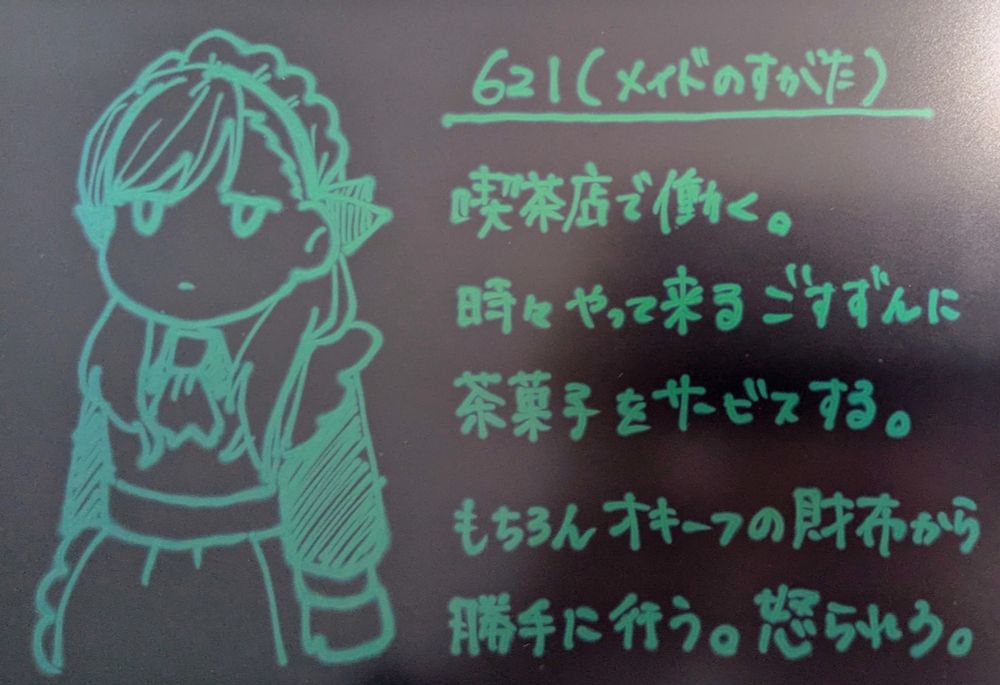 621(メイドのすがた)
喫茶店で働く。
時々やって来るごすずんに
茶菓子をサービスする。
もちろんオキーフの財布から
勝手に行う。怒られろ。